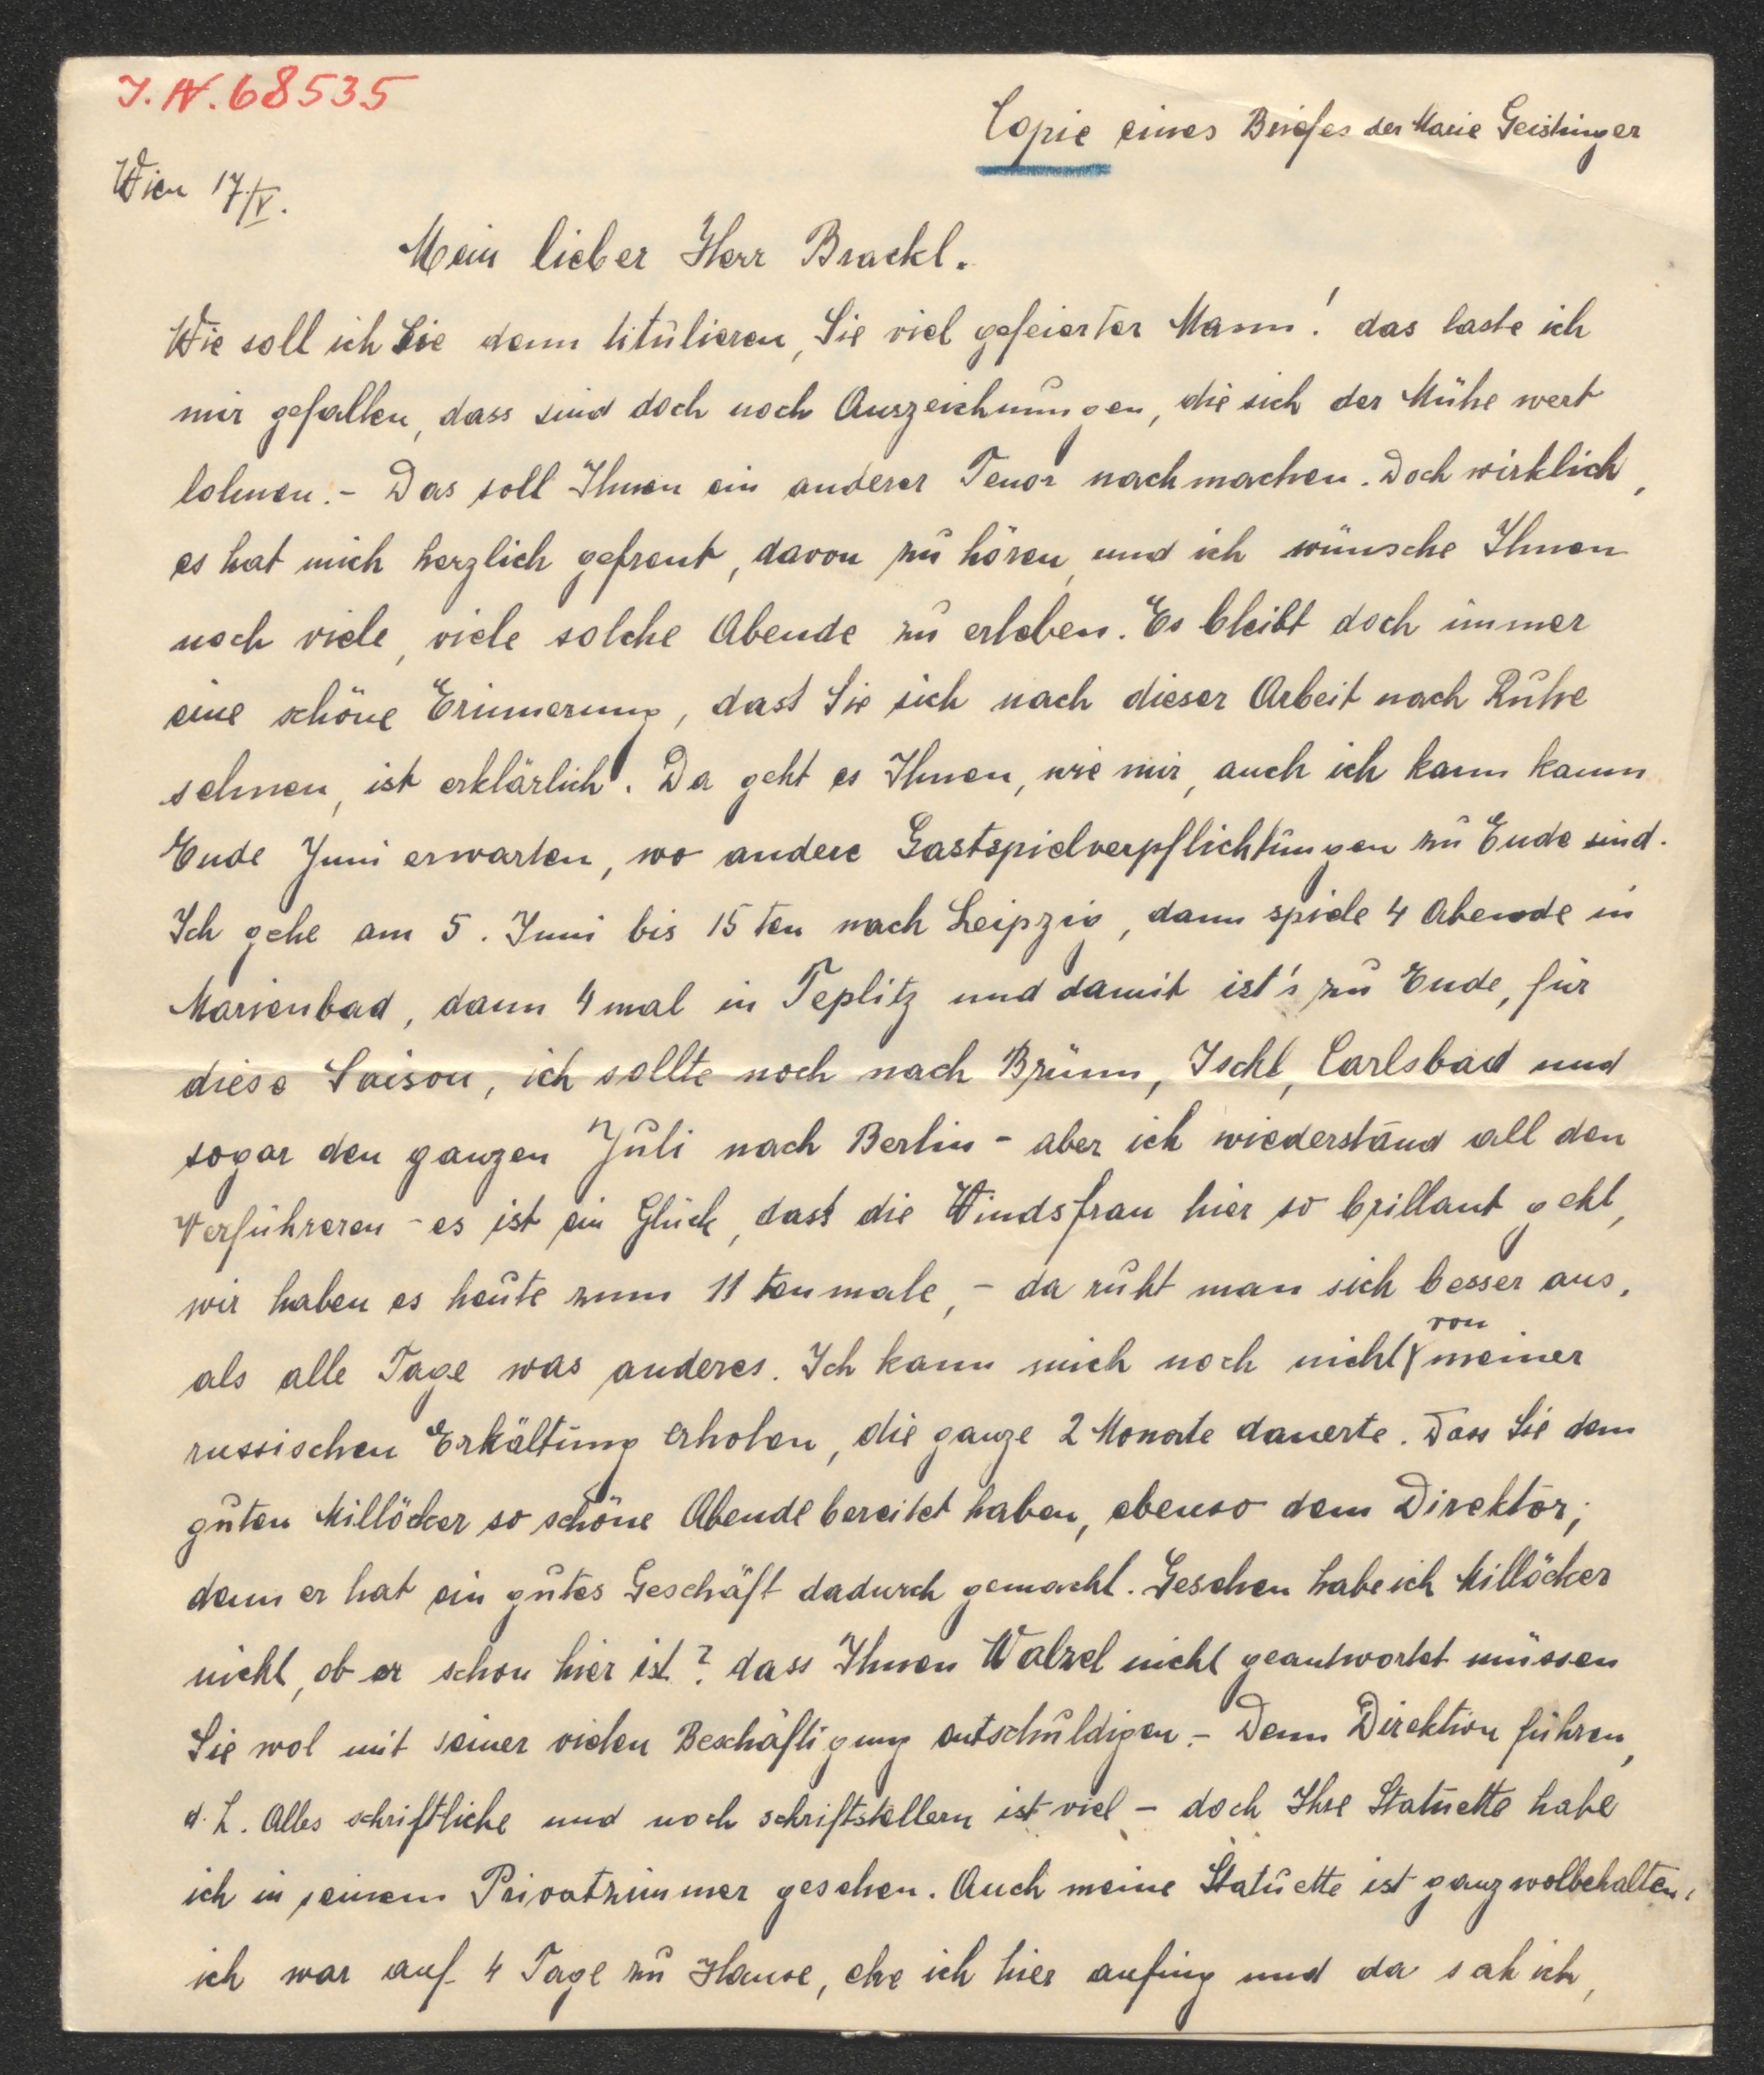 J.N. 68535
Copie eines Briefes der Marie Geistinger
Wien 17/V.
Mein lieber Herr Brackl.
Wie soll ich Sie denn titulieren, Sie viel gefeierter Mann! das laste ich
mir gefallen, dass sind doch noch Auszeichnungen, die sich der Mühe wert
lohnen. - Das soll Ihnen ein anderer Tenor nachmachen. Doch wirklich,
es hat mich herzlich gefreut, davon zu hören, und ich wünsche Ihnen
noch viele, viele solche Abende zu erleben. Es bleibt doch immer
eine schöne Erinnerung, dast Sie sich nach dieser Arbeit nach Ruhe
sehnen, ist erklärlich. Da geht es Ihnen, wie mir, auch ich kann kaum
Ende Juni erwarten, wo andere Gastspielverpflichtungen zu Ende sind.
Ich gehe am 5. Juni bis 15ten nach Leipzig, dann spiele 4 Abende in
Marienbad, dann 4 mal in Teplitz und damit ist's zu Ende, für
diese Saison, ich sollte noch nach Brünn, Ischl, Carlsbad und
sogar den ganzen Juli nach Berlin - aber ich wiederstand all den
Verführeren - es ist ein Glück, dast die Windsfrau hier so brillant geht,
wir haben es heute zum 11tenmale, - da ruht man sich besser aus,
als alle Tage was anderes. Ich kann mich noch nicht von meiner
russischen Erkältung erholen, die ganze 2 Monate dauerte. Dass Sie dem
guten Millöcker so schöne Abende bereitet haben, ebenso dem Direktor;
denn er hat ein gutes Geschäft dadurch gemacht. Gesehen habe ich Millöcker
nicht, ob er schon hier ist? dass Ihnen Walzel nicht geantwortet müssen
Sie wol mit seiner vielen Beschäftigung entschuldigen. - Denn Direktion führen,
d. h. Alles schriftliche und noch schriftstellern ist viel - doch Ihre Statuette habe
ich in seinem Privatzimmer gesehen. Auch meine Statuette ist ganz wolbehalten,
ich war auf 4 Tage zu Hause, ehe ich hier anfing und da sah ich,